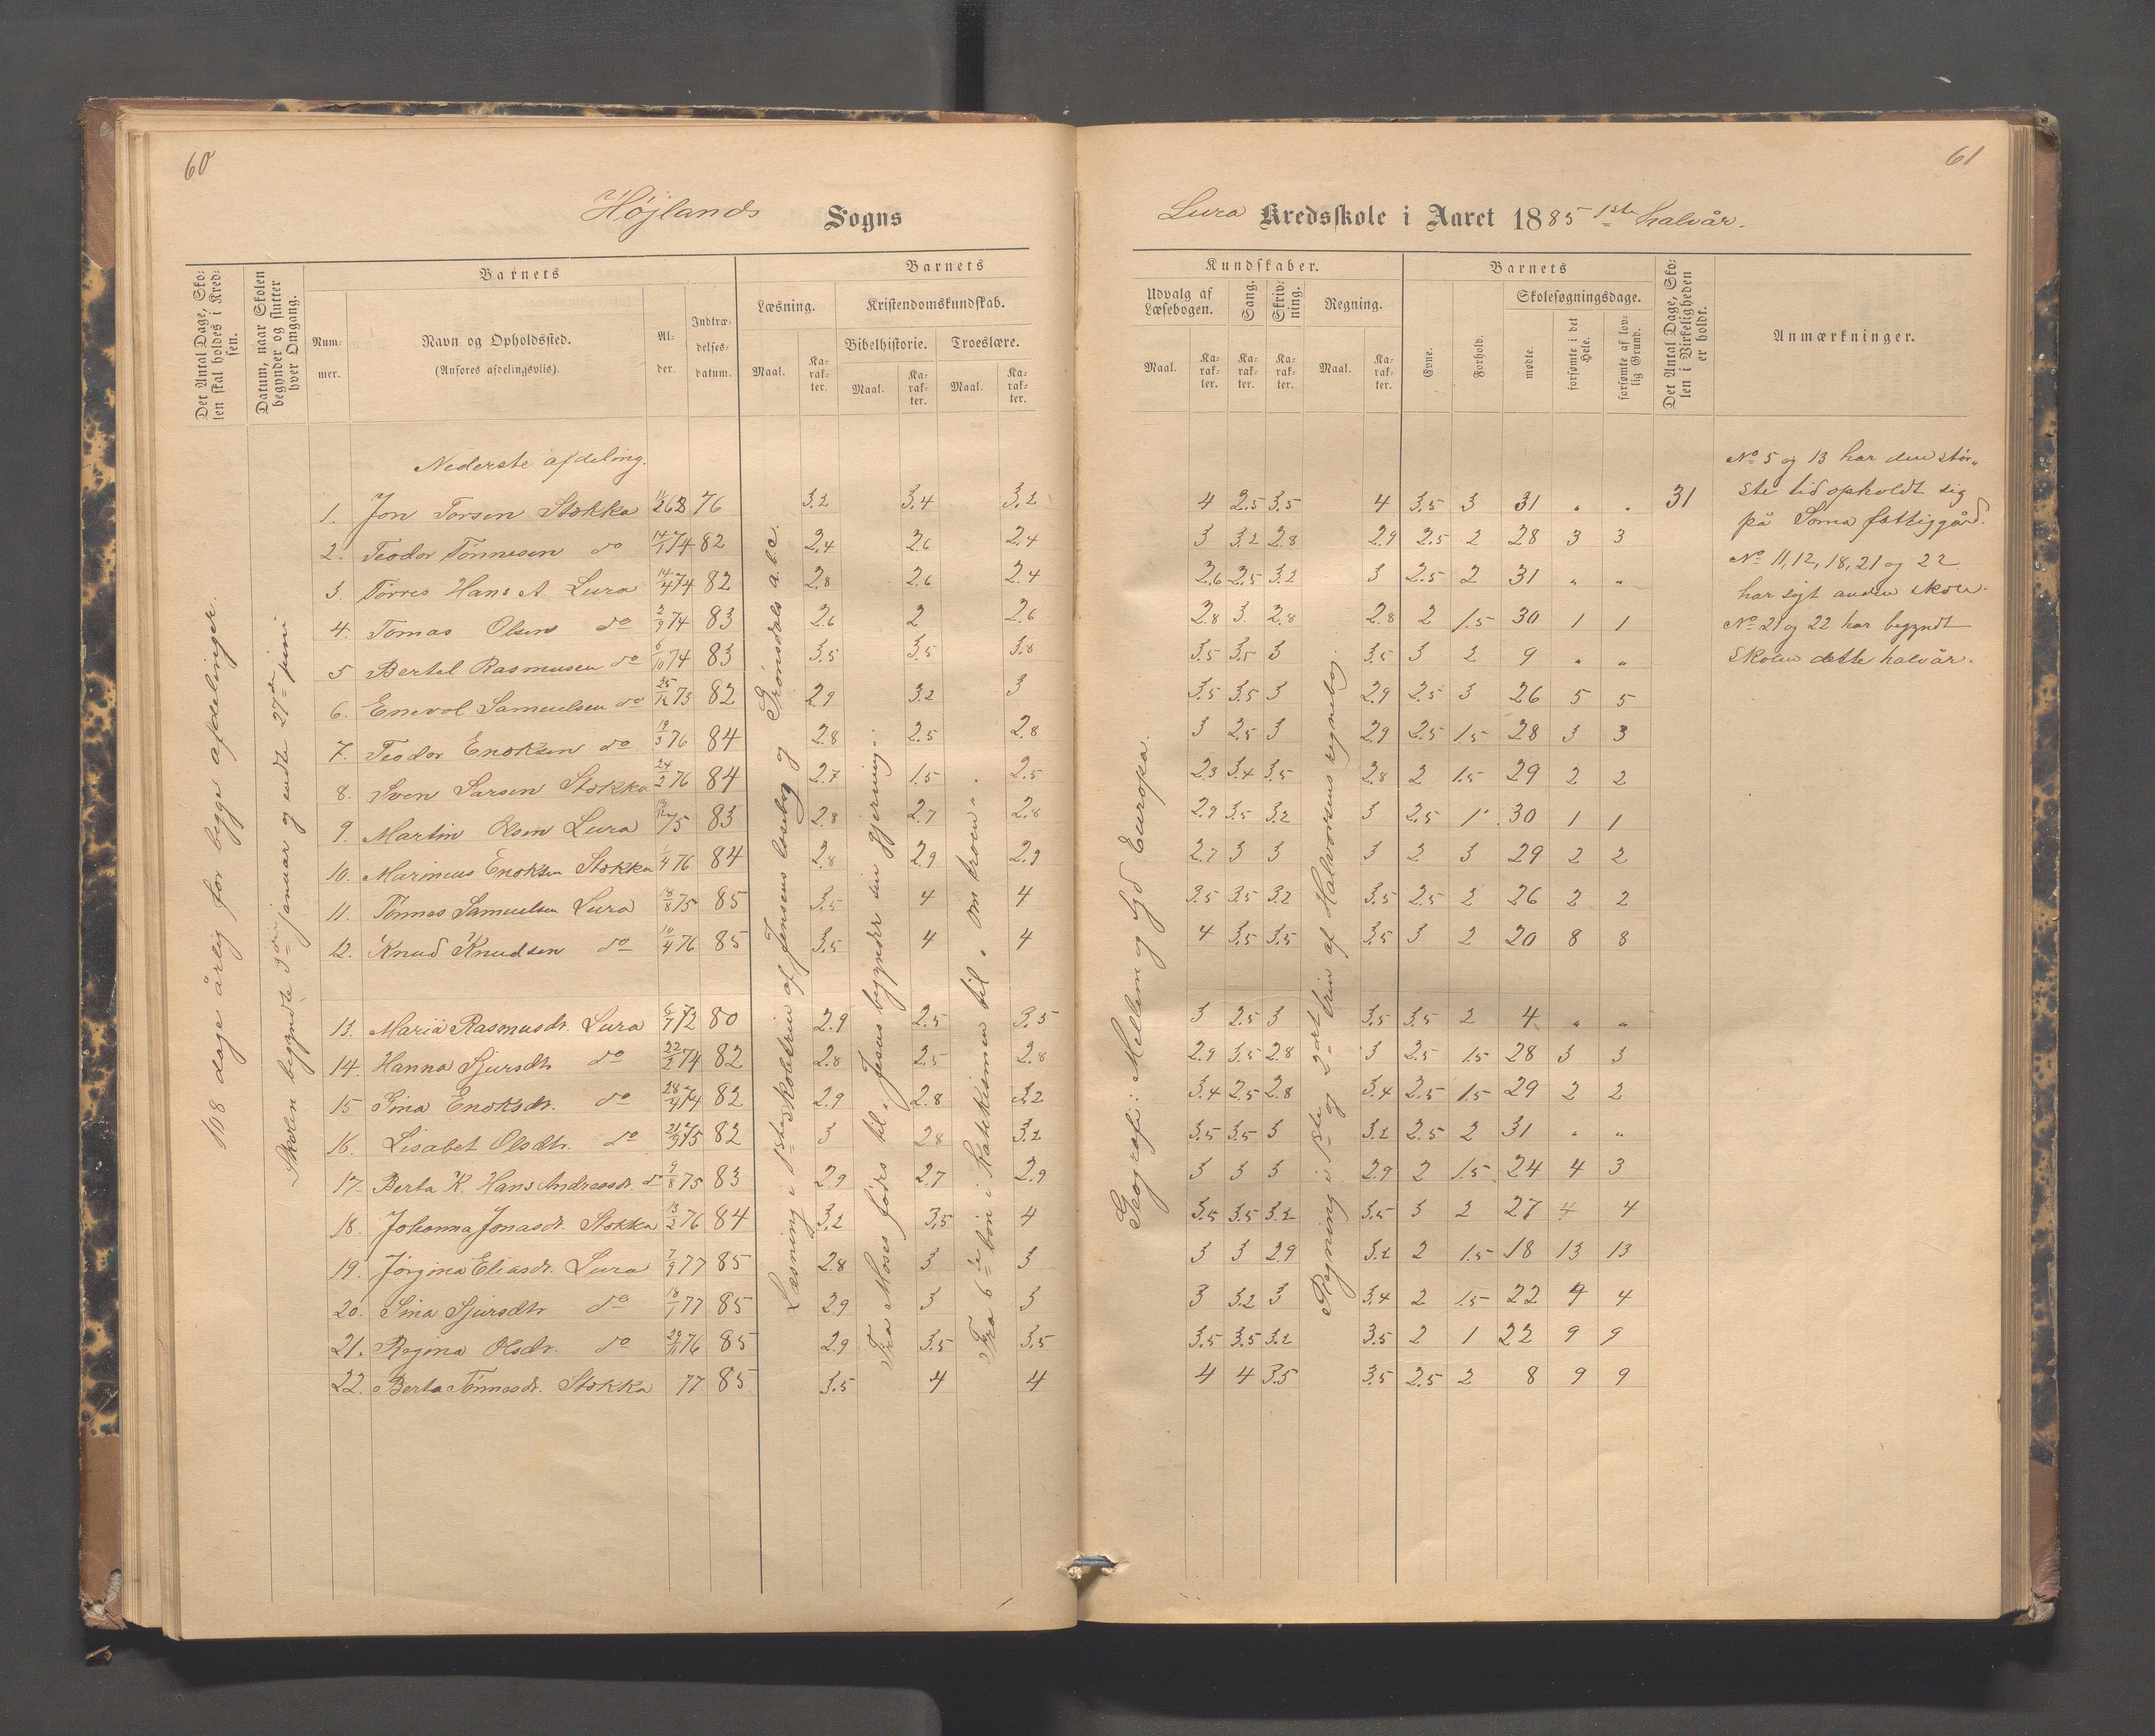 60
Højlands Sogns
Det Antal Dage, Sko-
len skal holdes i Kred-
sen.
Datum, naar Skolen
begynder og slutter
hver Omgang.
Barnets
Num-
mer.
Navn og Opholdssted.
(Anføres afdelingsviis).
Al-
der.
Indtræ-
delses-
datum.
Barnets
Læsning.
Maal.
Ka-
rak-
ter.
Kristendomskundskab.
Bibelhistorie.
Maal.
Ka-
rak-
ter.
Troeslære.
Maal.
Ka-
rak-
ter.
108 dage årlig for begge afdelinger.
Skolen begyndte 3die januar og endte 27de juni
Læsning i 1ste skoletrin af Jensens læsebog og Grönsdals a.b.c.
Fra Moses fødes til "Jesus begynder sin gjerning".
Fra 6te bön i Katekismen til "Om troen".
Nederste afdeling.
1. Jon Torsen Stokka 76 3.2 3.4 3.2
2. Teodor Tönnesen do 14/1 74 82 2.4 2.6 2.4
3. Torres Hans A. Lura 14/4 74 82 2.8 2.6 2.4
4. Tomas Olsen do 2/9 74 83 2.6 2 2.6
5 Bertel Rasmusen do 6/10 74 83 3.5 3.5 3.8
6. Enevol Samuelsen do 25/12 73 82 2.9 3.2 3
7. Teodor Enoksen do 19/3 76 84 2.8 2.5 2.8
8. Sven Larsen Stokka 24/2 76 84 2.7 1.5 2.5
9. Martin Olsen Lura 75 83 2.8 2.7 2.8
10. Marineus Enoksen Stokka 1/4 76 84 2.8 2.9 2.9
11. Tönnes Samuelsen Lura 18/8 75 85 3.5 4 4
12. Knud Knudsen do 10/4 76 85 3.5 4 4
13. Maria Rasmusdr. Lura 6/7 72 80 2.9 2.5 3.5
14. Hanna Sjursdtr do 22/2 74 82 2.8 2.5 2.8
15 Gina Enoksdr. do 28/4 74 82 2.9 2.8 3.2
16. Lisabet Olsdtr. do 21/9 75 82 3 2.8 3.2
17. Berta K. Hans Andreasdr. do 9/8 75 83 2.9 2.7 2.9
18. Johanna Jonasdr. Stokka 13/2 76 84 3.2 3.5 4
19. Jörgina Eliasdr. Lura 7/9 77 85 2.8 3 3
20. Sina Sjursdtr do 18/1 77 85 2.9 3 3
21. Regina Olsdr. do 29/11 76 85 2.9 3.5 3.5
22. Berta Tönnesdr. Stokka 77 85 3.5 4 4
61
Lura Kredsskole i Aaret 1885 1ste halvår.
Kundskaber.
Udvalg af
Læsebogen.
Maal.
Ka-
rak-
ter.
Sang.
Ka-
rak-
ter.
Skriv-
ning.
Ka-
rak-
ter.
Regning.
Maal.
Ka-
rak-
ter.
Barnets
Evne.
Forhold.
Skolesøgningsdage.
mødte.
forsømte i det
Hele.
forsømte af lov-
lig Grund.
Det Antal Dage, Sko-
len i Virkeligheden
er holdt.
Anmærkninger.
Geografi: Mellem og Syd Europa.
Regning i 1ste og 2det trin af Halvorsens regnebog.
4 2.5 3.5 4 3.5 3 31 " " 31
3 3.2 2.8 2.9 2.5 2 28 3 3
2.6 2.5 3.2 3 2.5 2 31 " "
2.8 3. 2.8 2.8 2 1.5 30 1 1
3.5 3.5 3 3.5 3 2 9 " "
3.5 3.5 3 2.9 2.5 3 26 5 5
3 2.5 3 2.9 2.5 1.5 28 3 3
2.3 3.4 3.5 2.8 2 1.5 29 2 2
2.9 3.5 3.2 3 2.5 1 30 1 1
2.7 3 3 3 2 3 29 2 2
3.5 3.5 3.2 3.5 2.5 2 26 2 2
4 3.5 3.5 3.5 3 2 20 8 8
3 2.5 3 3.5 3.5 2 4 " "
2.9 3.5 2.8 3 2.5 1.5 28 3 3
3.4 2.5 2.8 3.4 2.5 1.5 29 2 2
3.5 3.5 3 3.2 2.5 2 31 " "
3 3 3 2.9 2 1.5 24 4 3
3.5 3.5 3.2 3.5 3 2 27 4 4
3 3 2.9 3.2 2 1.5 18 13 13
3 3.2 3 3.4 2 1.5 22 4 4
3.5 3.5 3.2 3.5 2 1 22 9 9
4 4 3.5 3.5 2.5 2 8 9 9
No 5 og 13 har den stör-
ste tid opholdt sig
på Soma fattiggård.
No 11, 12, 18, 21 og 22
har søjt anden skole.
No 21 og 22 har begyndt
skolen dette halvår.